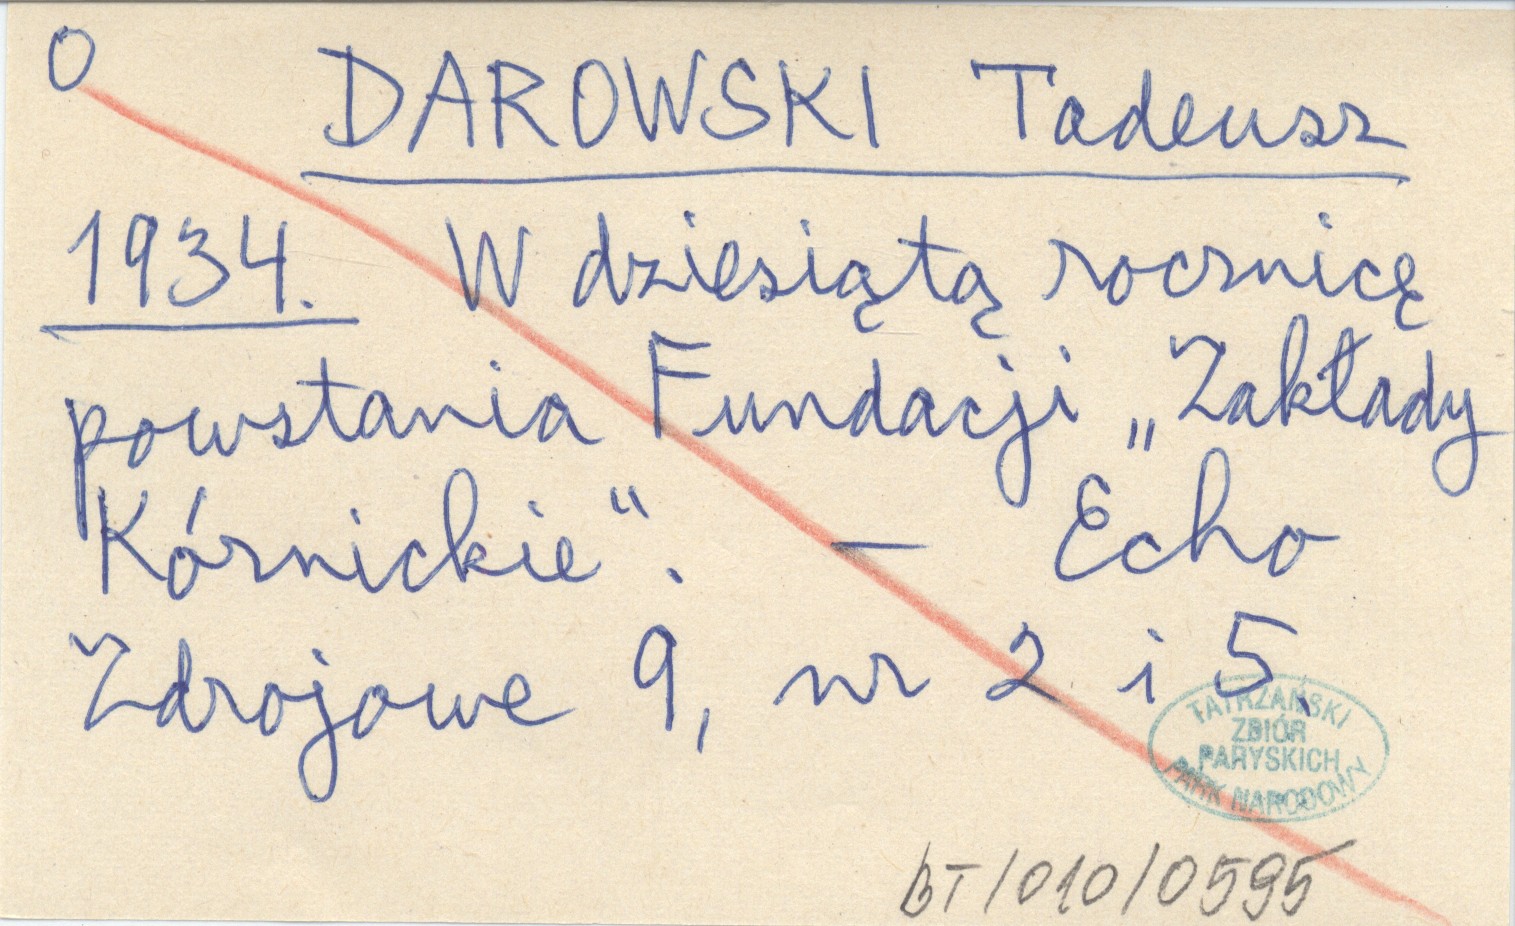 O
DAROWSKI Tadeusz
1934. W dziesiątą rocznicę
powstania Fundacji „Zakłady
Kórnickie". — Echo
Zdrojowe 9, nr 2 i 5.
TATRZAŃSKI
ZBIÓR
PARYSKICH
PARK NARODOWY
BT/010/0595